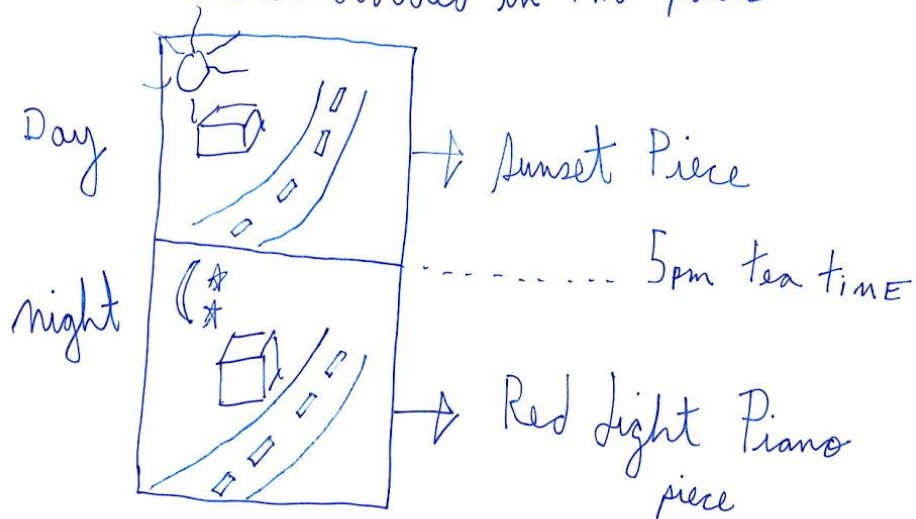 in two
Day
Sunset Piece
5pm tea time
night
Red Light Piano
piece